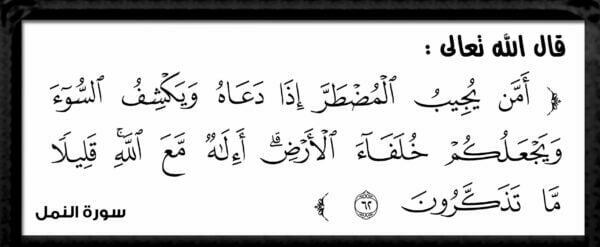 قال الله تعالى :
﴿ أَمَّن يُجِيبُ ٱلْمُضْطَرَّ إِذَا دَعَاهُ وَيَكْشِفُ ٱلسُّوٓءَ
وَيَجْعَلُكُمْ خُلَفَآءَ ٱلْأَرْضِ ۗ أَءِلَٰهٌ مَّعَ ٱللَّهِ ۚ قَلِيلًا
مَّا تَذَكَّرُونَ ٦٢ ﴾
سورة النمل